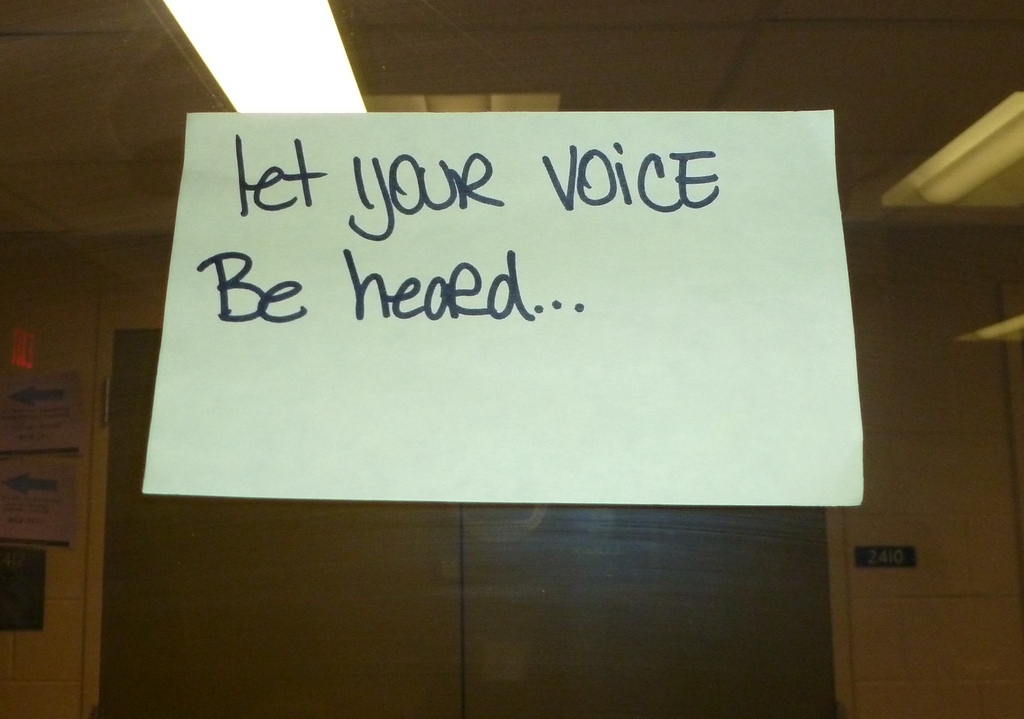 let your voicE
Be heard...
2410